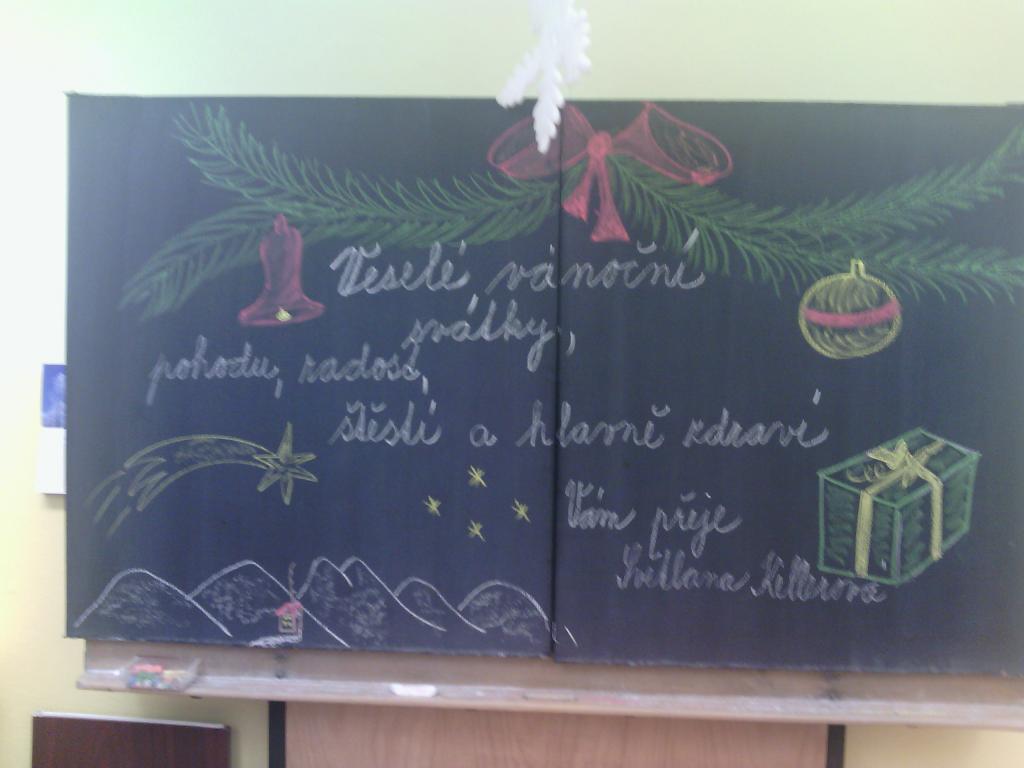 Veselé vánoční
svátky,
pohodu, radost,
štěstí a hlavně zdraví
Vám přeje
Světlana Kellerová